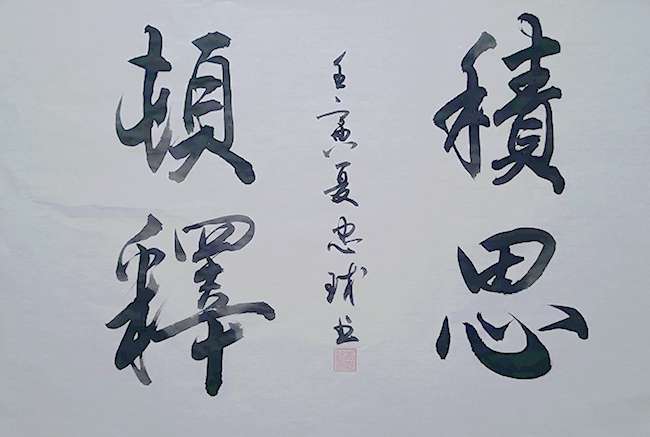 積思
壬寅夏忠球书
頓釋